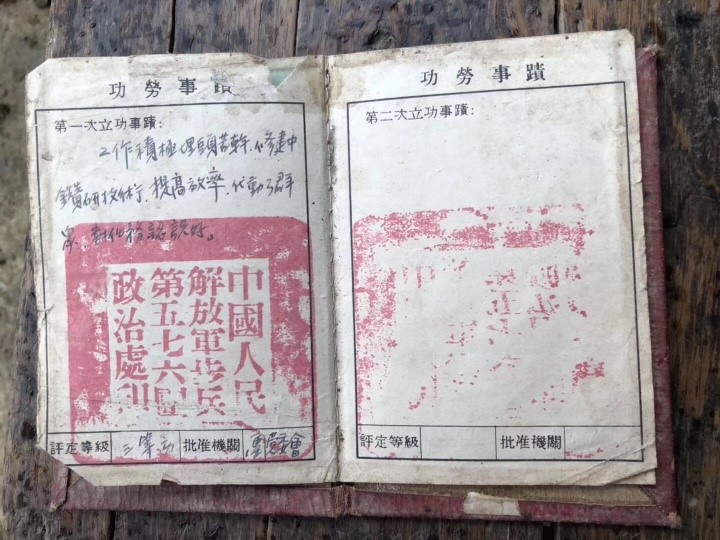 功勞事蹟
第一次立功事蹟:
工作積極埋頭苦幹、修建中
鑽研技術、提高效率、代動了群
衆、
中國人民
解放軍步兵
第五七六團
政治處印
評定等級 三等功 批准機關 團黨委會
功勞事蹟
第二次立功事蹟:
評定等級 批准機關